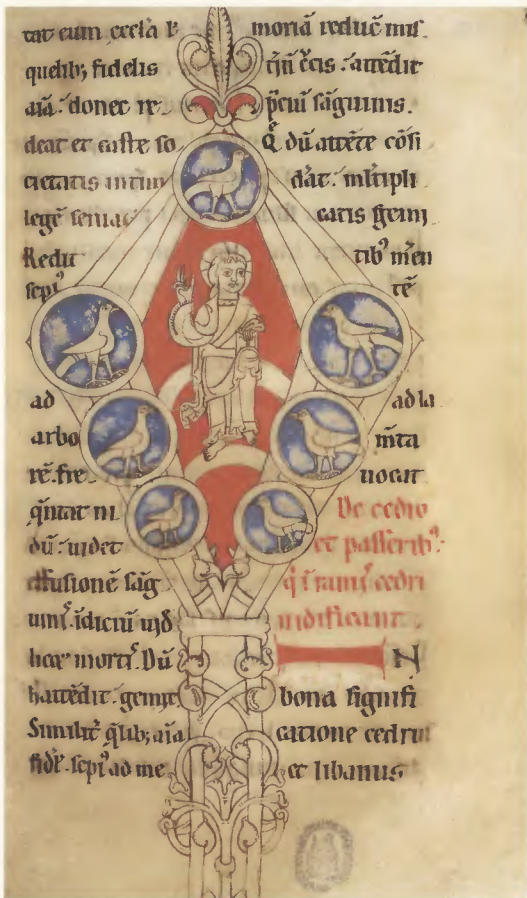 tat eum eccła ł
quelib; fidelis
aīa. donec re
deat et caste so
cietatis intim
legē seruiat
Redit
sepi⁹
ad
arbo
rē. fre
q̄ntat ni
dū. uidet
effusionē sag
uinis. īdiciū uid
licet mortis. Dū
h̄ attēdit. gemit
Similit̄ q̄lib; aīa
fidel. sepi⁹ ad me
moriā reducē
attēdit
p̄ciū sāguinis.
Q̄ dū attēte cōsi
dat. mltipli
catis gemi
tib⁹ mēn
tē
ad la
mta
uocat
De cedro
et passerib⁹
q̄ ī ramis cedri
nidificant
IN
bona signifi
catione cedrus
et libanus